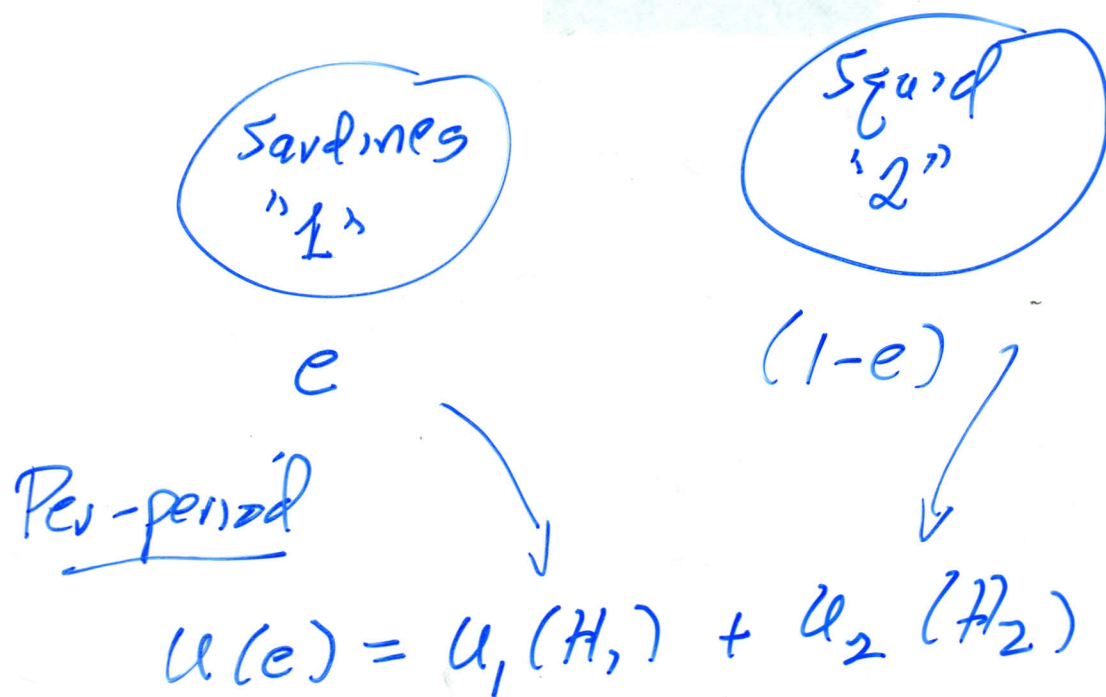 Sardines
"1"
Squid
"2"
e
(1-e)
Per-period
u(e) = u₁(H₁) + u₂(H₂)